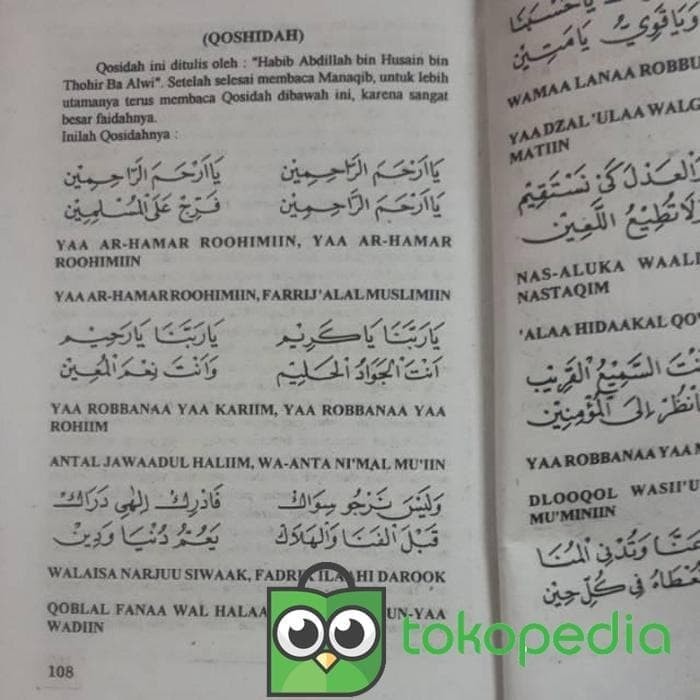 (QOSHIDAH)
Qosidah ini ditulis oleh : "Habib Abdillah bin Husain bin
Thohir Ba Alwi". Setelah selesai membaca Manaqib, untuk lebih
utamanya terus membaca Qosidah dibawah ini, karena sangat
besar faidahnya.
Inilah Qosidahnya :
يَا اَرْحَمَ الرَّاحِمِيْن يَا اَرْحَمَ الرَّاحِمِيْن
يَا اَرْحَمَ الرَّاحِمِيْن فَرِّجْ عَلَى الْمُسْلِمِيْن
YAA AR-HAMAR ROOHIMIIN, YAA AR-HAMAR
ROOHIMIIN
YAA AR-HAMAR ROOHIMIIN, FARRIJ 'ALAL MUSLIMIIN
يَا رَبَّنَا يَا كَرِيْم يَا رَبَّنَا يَا رَحِيْم
اَنْتَ الْجَوَادُ الْحَلِيْم وَاَنْتَ نِعْمَ الْمُعِيْن
YAA ROBBANAA YAA KARIIM, YAA ROBBANAA YAA
ROHIIM
ANTAL JAWAADUL HALIIM, WA-ANTA NI'MAL MU'IIN
وَلَيْسَ نَرْجُوْ سِوَاكْ فَادْرِكْ اِلٰهِيْ دَرَاكْ
قَبْلَ الْفَنَا وَالْهَلَاكْ يَعُمُّ دُنْيَا وَدِيْن
WALAISA NARJUU SIWAAK, FADRIK ILAAHI DAROOK
QOBLAL FANAA WAL HALAA UN-YAA
WADIIN
108
وَيَا قَوِيُّ يَا مَتِيْن
WAMAA LANAA ROBBU
YAA DZAL 'ULAA WALG
MATIIN
الْعَدْلَ كَيْ نَسْتَقِيْم
لَا نُطِيْعُ اللَّعِيْن
NAS-ALUKA WAALI
NASTAQIM
'ALAA HIDAAKAL QO
نْتَ السَّمِيْعُ الْقَرِيْب
انْظُرْ اِلَى الْمُؤْمِنِيْن
YAA ROBBANAA YAA M
DLOOQOL WASII'U
MU'MINIIN
وَتُدْنِي الْمُنَا
فِيْ كُلِّ حِيْن
tokopedia